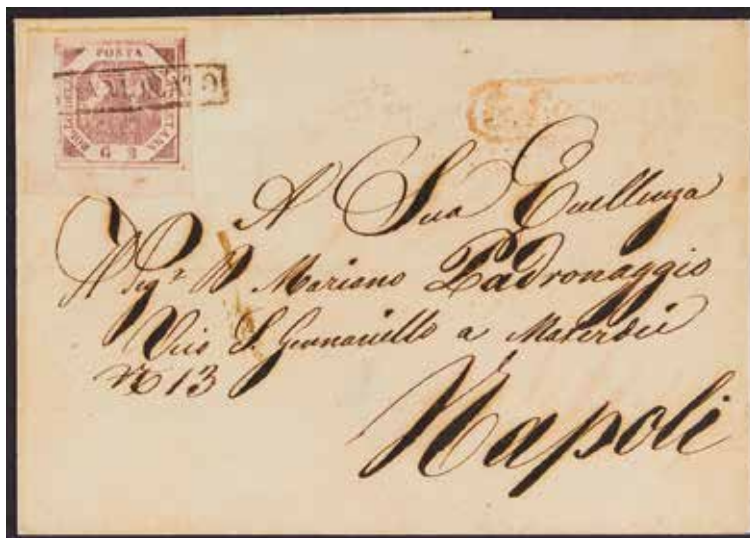 POSTA
ANNULLATO
G 2
A Sua Eccellenza
Il Sigr D Mariano Padronaggio
Vico S. Gennariello a Materdei
No 13
Napoli